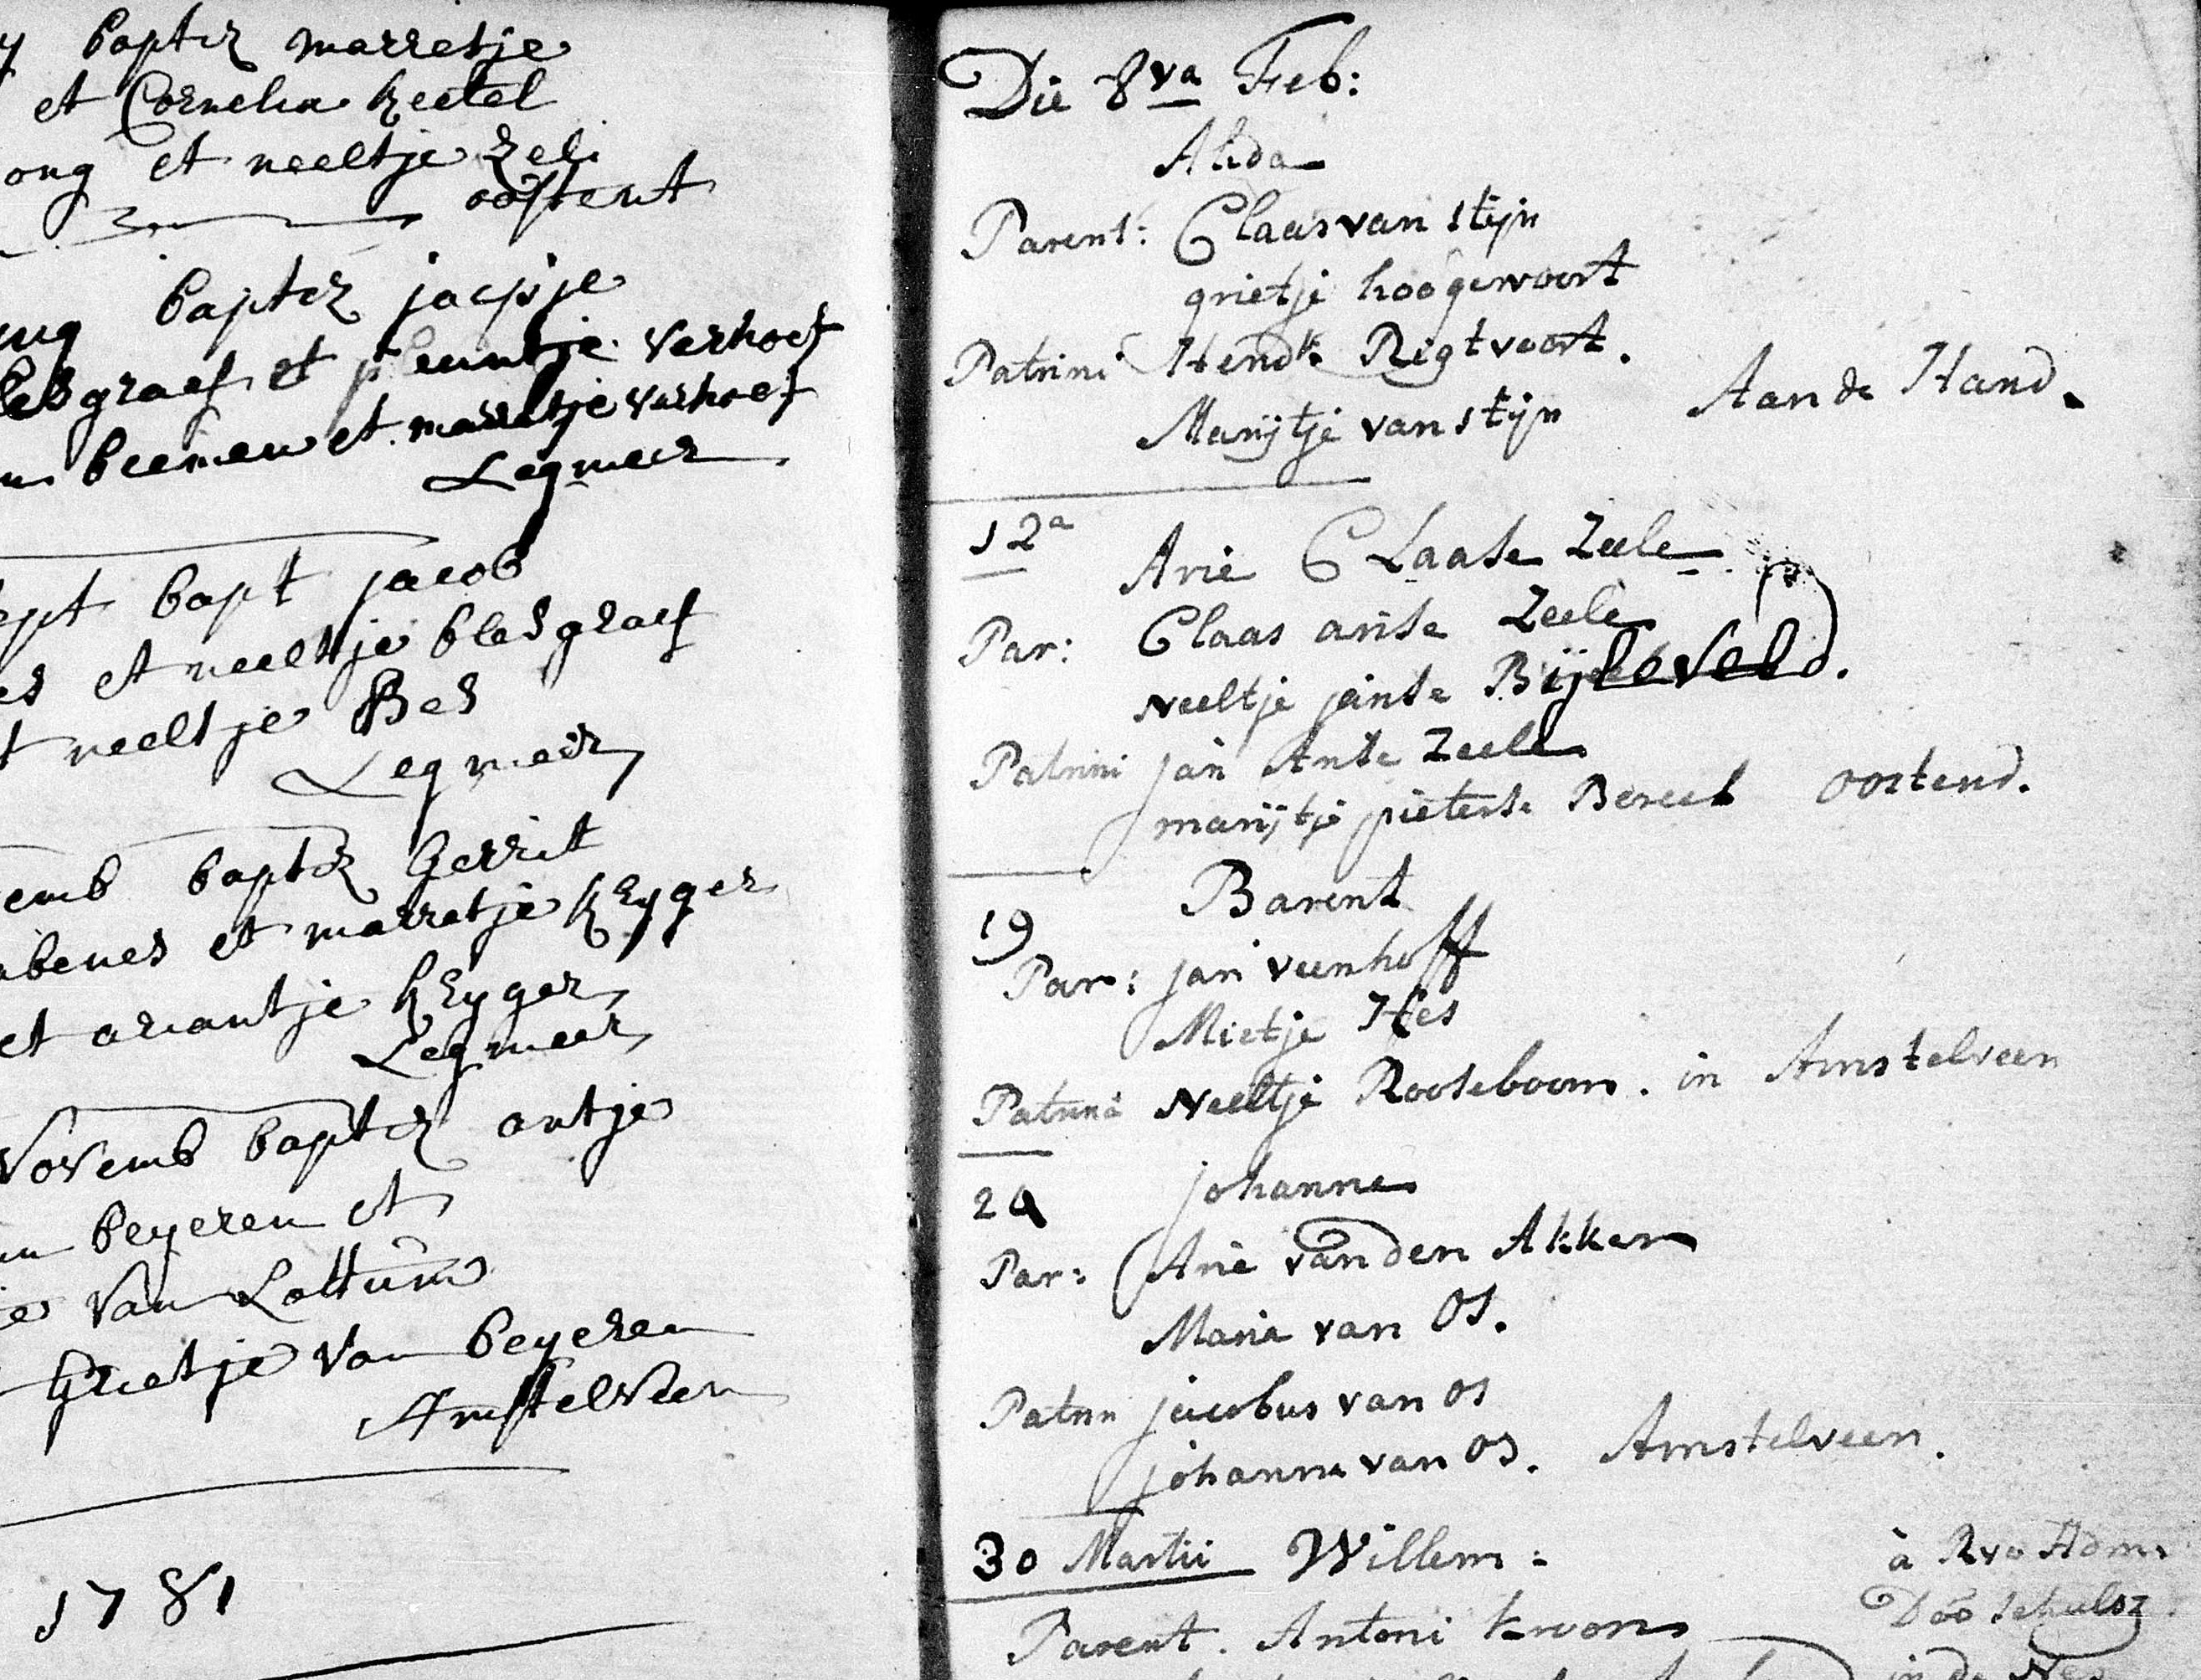 baptz marretje
et Cornelia Keetel
ong et neeltje zeli
oostent
baptz jacpje
et pleuntje verhoef
beemen et marretje verhoef
Legmeer
bapt jacob
et neeltje blesgraef
neeltje Bes
Legmeer
emb baptz Gerrit
et marretje kryger
et ariantje kryger
Legmeer
Novemb baptz antje
beyeren et
van Lottum
Grietje van beyeren
Amstelveen
1781
Die 8va Feb:
Alida
Parent: Claas van stijn
grietje hoogervoort
Patrini Hendk Rigtvoort.
Marijtje van stijn Aan de Hand.
12a Arie Claase Zeele
Par: Claas arise Zeele
Neeltje janse Bijleveld.
Patrini jan Arise Zeele
marijtje pieterse Berect oostend.
Barent
19
Par: jan veenhoff
Mietje Hes
Patrini Neeltje Rooseboom. in Amstelveen
24 johanna
Par: Arie van den Akker
Maria van Os.
Patrin jacobus van os
johanna van Os. Amstelveen.
30 Martii Willem: à Rvo Adm:
Dóo Schulsz.
Parent. Antoni kroon
in de